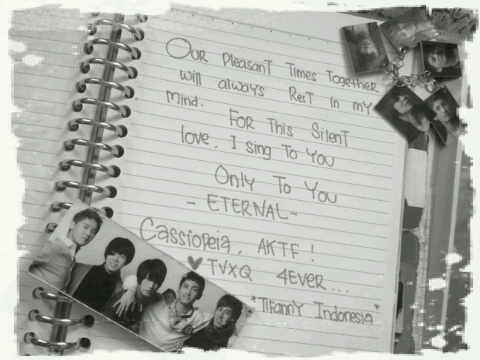 Our Pleasant Times Together
will always Rest in my
mind.
For This Silent
love. I sing To You
Only To You
- ETERNAL -
Cassiopeia, AKTF!
♥ TVXQ 4Ever...
"Tiffanny Indonesia"